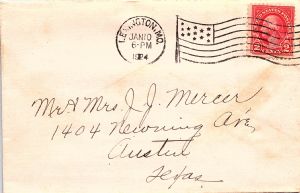 LEXINGTON, MO.
JAN 10
6-PM
1924
2 CENTS 2
Mr & Mrs. J. J. Mercer
1404 Newning Ave,
Austin
Texas